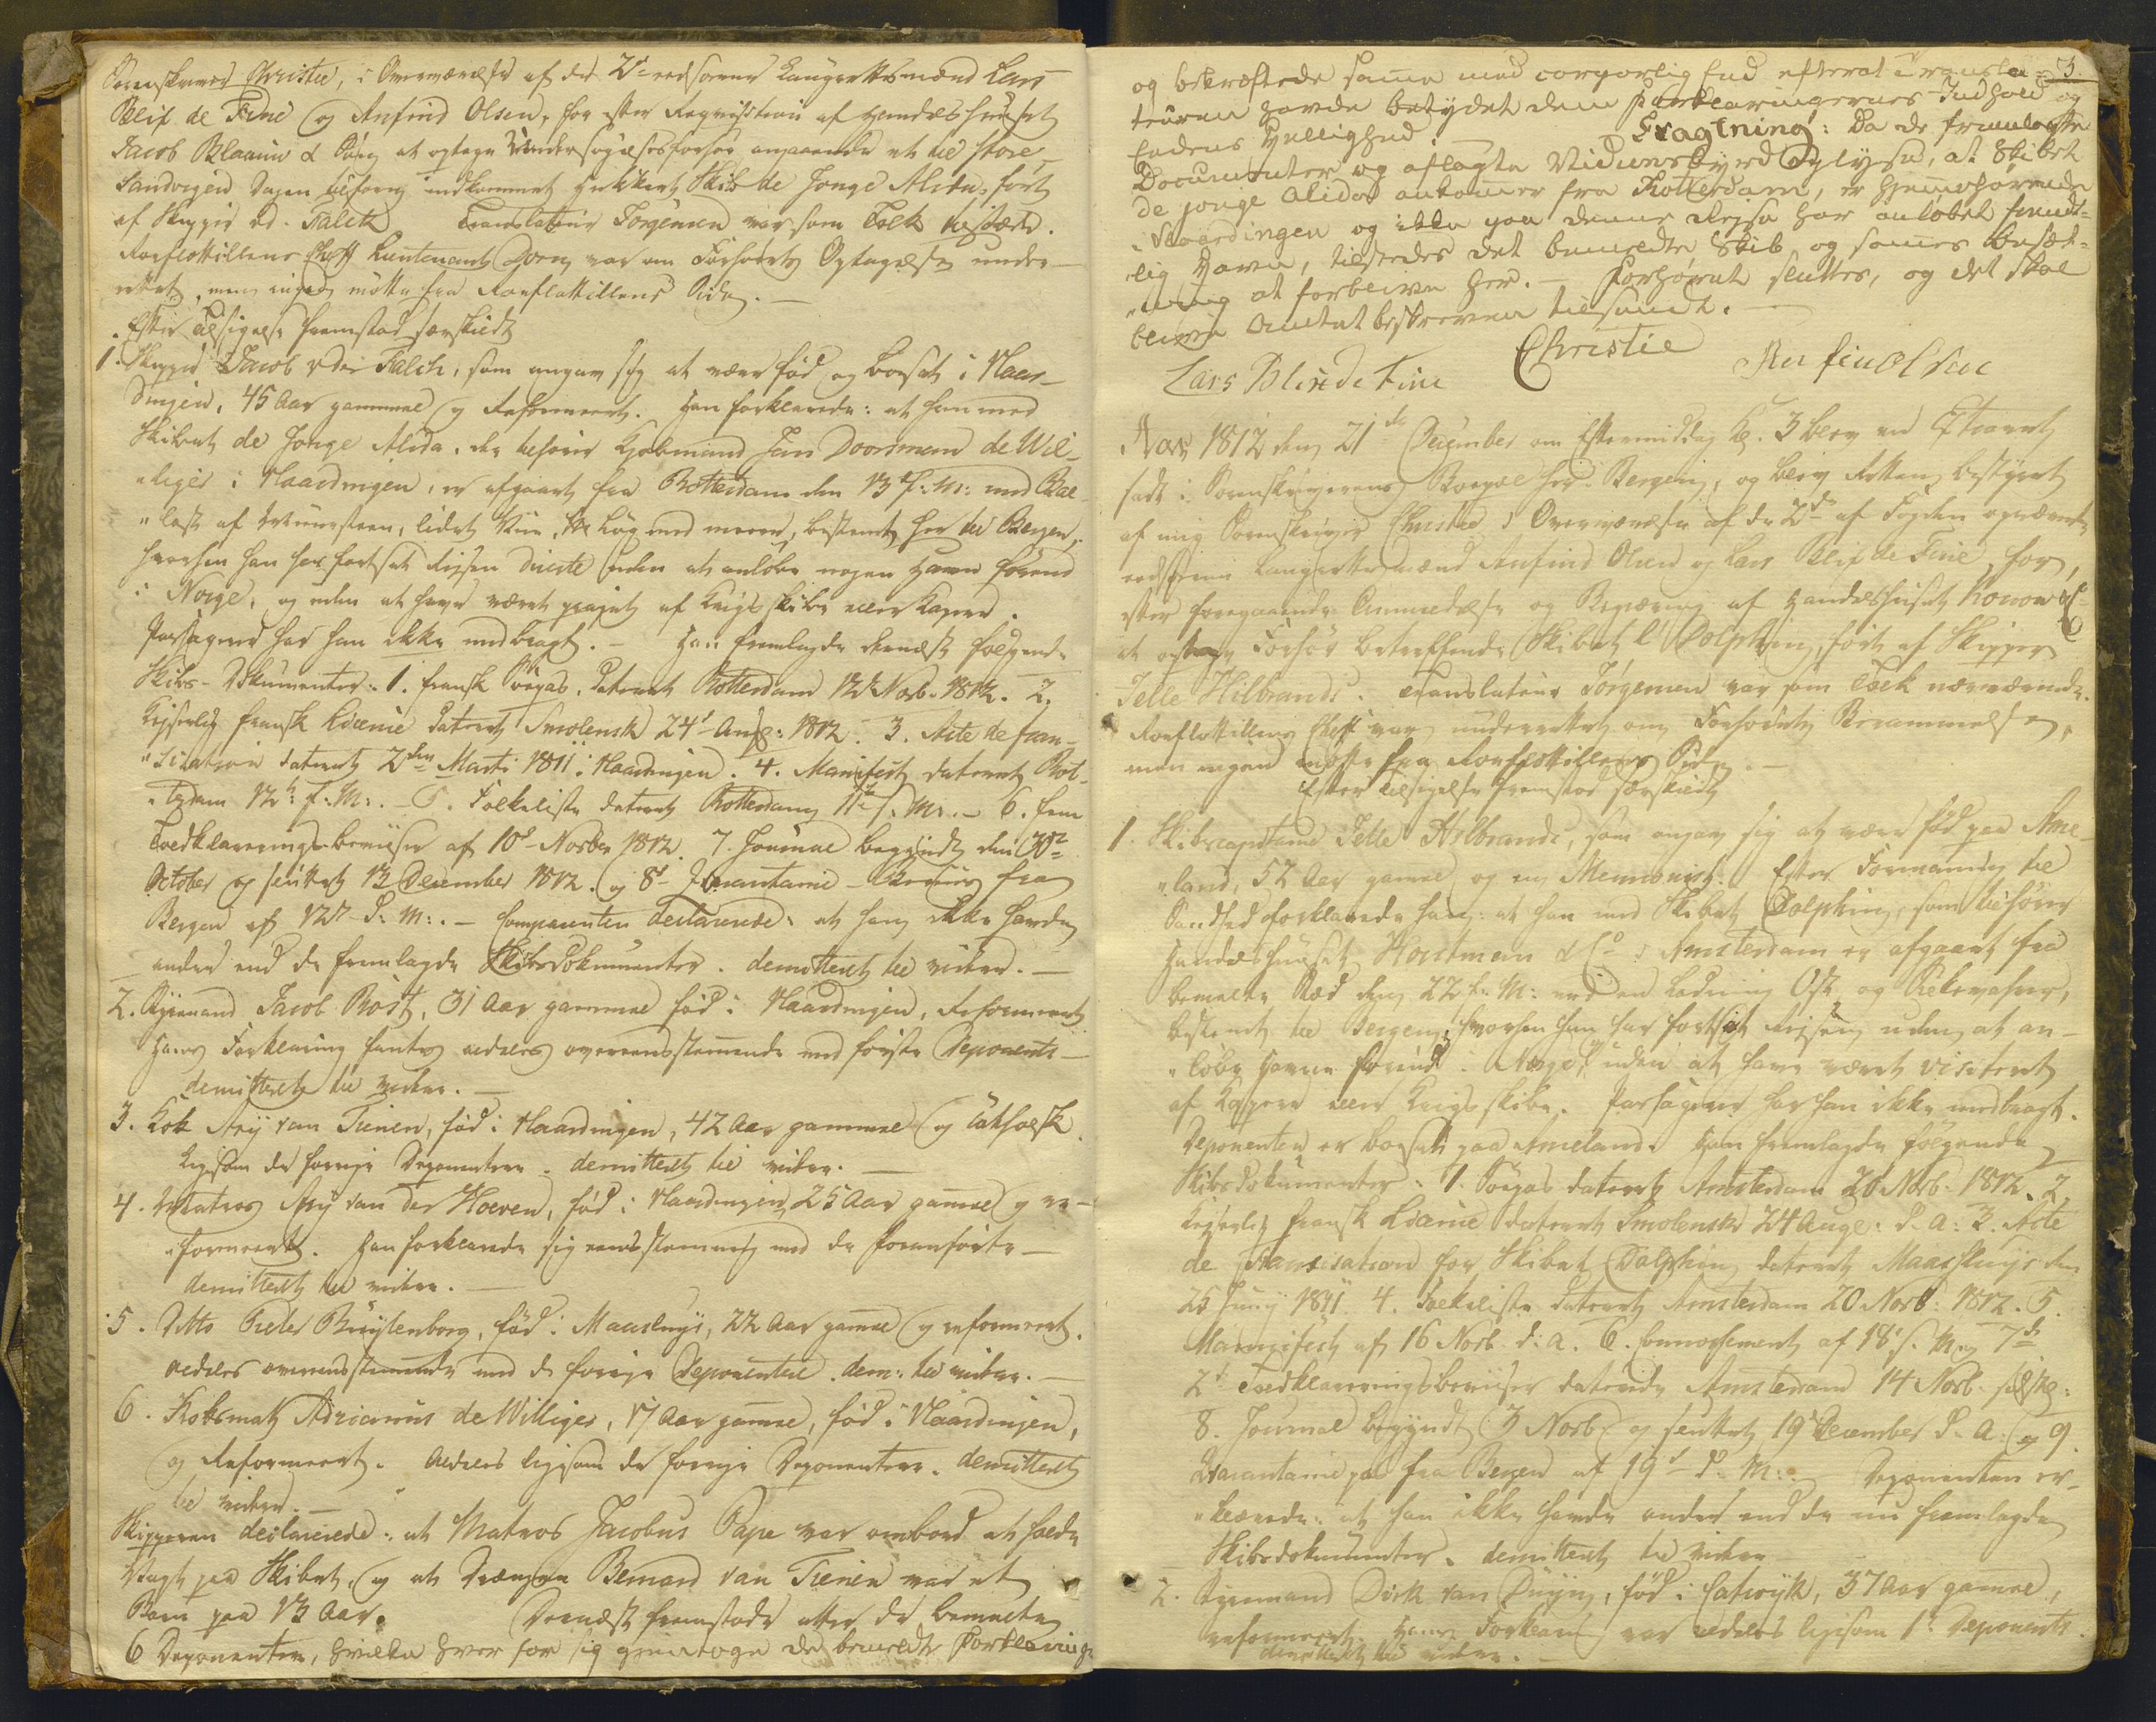 Sorenskriver Christie, i Overværelse af de 2de eedsorne Laugrettesmænd Lars
Blix de Fine og Anfind Olsen, for efter Requisition af Handelshuuset
Jacob Blaauw & Søn at optage Undersøgelsesforhør angaaende et til store
Sandvigen Dagen tilforn indkommet Skib de Jonge Alida, ført
af Skipper v d. Falck Translateur Jørgensen var som Tolk tilstæde.
Roeflottillens Cheff Lieutenant Dorn var om Forhørets Optagelse under-
rettet, men ingen mötte fra Roeflottillens Side. —
Efter Tilsigelse fremstod særskildt
1. Skipper Jacob v der Falch, som angav sig at være fød og boesat i Vlaar-
dingen, 45 Aar gammel og Reformeert. Han forklarede: at han med
Skibet de Jonge Alida, der tilhører Kjøbmand Jan Doorsmann de Wil-
"liges i Vlaardingen, er afgaaet fra Rotterdam den 13 f: M: med Bal-
"last af Steen, lidet Viin, Løg med meere, bestemt her til Bergen,
hvorhen han har fortsat Reisen directe uden at anløbe nogen Havn førend
i Norge, og uden at have været prajet af Krigsskibe eller Kapere.
Passagerer har han ikke medbragt. — Han fremlagde dernæst følgende
Skibs-Dokumenter: 1. fransk Søepas, dateret Rotterdam 12 Novb. 1812. 2.
Keiserlig fransk Licence dateret Smolensk 24d Aug: 1812. 3. Acte de fran-
"cisation dateret 2den Marti 1811 i Vlaardingen. 4. Manifest dateret Rot-
"terdam 12te f: M:. — 5. Folkeliste dateret Rotterdam 11te f. M:. — 6. fem
Toldklareringsbeviser af 10de Novbr 1812. 7. Journal begyndt den 30te
October og sluttet 13 December 1812. og 8de Qvarantaine-Beviis fra
Bergen af d: M:. — Comparenten declarerede: at han ikke havde
andre end de fremlagde Skibsdokumenter. demitteret til videre. —
2. Styrmand Jacob Bost, 31 Aar gammel fød i Vlaardingen, Reformeert
Hans Forklaring fantes aldeles overeensstemmende med første Deponents —
demitteret til videre. —
3. Kok Arij van Tienen, fød i Vlaardingen, 42 Aar gammel og Catholsk.
Ligesom de forrige Deponentere. demitteret til videre. —
4. Matros Arij van der Hoeven, fød i Vlaardingen 25 Aar gamel og re-
"formeert. Han forklarede sig eensstemmig med de foranførte —
demitteret til videre. —
5. Ditto Pieter Bruijtenborg, fød i Maasluijs, 22 Aar gamel og reformeert.
aldeles overeensstemmende med de forrige Deponenter. dem: til videre. —
6. Koksmat Adrianus de Williges, 17 Aar gamel, fød i Vlaardingen,
og Reformeert. Aldeles ligesom de forrige Deponentere. demitteret
til videre. —
Skipperen declarerede: at Matros Jacobus Pape var ombord at holde
Vagt paa Skibet, og at Drængen Bernard van Tienen var et
Barn paa 13 Aar. Dernæst fremstode atter de bemeldte
6 Deponenter, hvilke hver for sig gjentoge de bemeldte Forklaringer
3
og bekræftede samme med corporlig Eed efterat Transla-
teuren havde betydet dem Forklaringernes Indhold og
Eedens Hellighed. Fragtning: Da de fremlagte
Documenter og aflagte Vidnesbyrd oplyse, at Skibet
de jonge Alida ankommer fra Rotterdam, er hjemmehørende
i Vlaardingen og ikke paa denne Rejse har anløbet fiendt-
lig Havn, tilstedes det bemeldte Skib, og sammes Besæt-
"ning at forblive her. — Forhøret sluttes, og det skal
blive Amtet beskreven tilsendt. —
Lars Blix de Fine Christie Anfind Olsen
Aar 1812 den 21de December om Eftermiddag Kl. 3 blev en Extraret
sadt i Sorenskriverens Boepæl her i Bergen, og blev Retten bestyret
af mig Sorenskriver Christie i Overværelse af de 2de af Fogden opnævnte
eedsorne Laugrettesmænd Anfind Olsen og Lars Blix de Fine, for,
efter foregaaende Anmeldelse og Begæring af Handelshuuset Konow & Co
at optage Forhør betreffende Skibet l' Dolphin, ført af Skipper
Jelle Hilbrands. Translateur Jørgensen var som Tolk nærværende.
Roeflottillens Cheff var underrettet om Forhørets Berammelse,
men ingen mötte fra Roeflottillens Side. —
Efter Tilsigelse fremstod særskildt
1. Skibscapitaine Jelle Hilbrands, som angav sig at være fød paa Ame-
"land, 52 Aar gamel og en Mennonist. Efter Formaning til
Sandhed forklarede han: at han med Skibet Dolphin, som tilhører
Handelshuuset Horstman & Co i Amsterdam er afgaaet fra
bemeldte Stæd den 22 f: M: med en Ladning Ost og Stykevahrer,
bestemt til Bergen, hvorhen han har fortsat Rejsen uden at an-
"løbe Havne førend i Norge, uden at have været visiteret
af Kapere eller Krigsskibe. Passagerer har han ikke medbragt.
Deponenten er boesat paa Ameland. Han fremlagde følgende
Skibsdokumenter: 1. Søepas dateret Amsterdam 20 Novb. 1812. 2.
Keiserlig fransk Licence dateret Smolensk 24 Aug: d. A: 3. Acte
de francisation for Skibet Dolphin dateret Maassluijs den
25 Junij 1811. 4. Folkeliste dateret Amsterdam 20 Novb: 1812. 5.
Manifest af 16 Novb. d: A. 6. Connossement af 18d s. M og 7de
2de Toldklareringsbeviser daterede Amsterdam 14 Novb.
8. Journal begyndt 3 Novb. og sluttet 19 December d. A. og 9.
Qvarantainepas fra Bergen af 19d d. M:. Deponenten er-
"klærede: at han ikke havde andre end de nu fremlagde
Skibsdokumenter. demitteret til videre
2. Styrmand Dirk van Duijn, fød i Catwyk, 37 Aar gamel,
reformeert. Hans Forklaring var aldeles ligesom 1te Deponents.
demitteret til videre. —